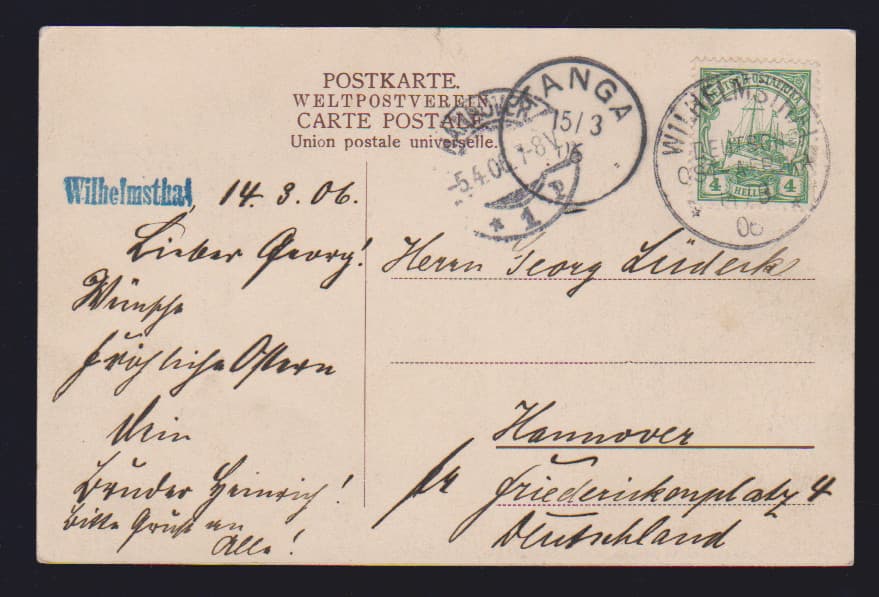 POSTKARTE.
WELTPOSTVEREIN.
CARTE POSTALE.
Union postale universelle.
HANNOVER
5.4.06 7-8V.
* 1 P
TANGA
15/3
06
WILHELMSTHAL
DEUTSCH
06
4 HELLER 4
Wilhelmsthal, 14.3.06.
Lieber Georg!
Wünsche
fröhliche Ostern
Dein
Bruder Heinrich!
Bitte Gruß an
Alle!
Herrn Georg Lüdeck
Hannover
Friederickenplatz 4
Deutschland